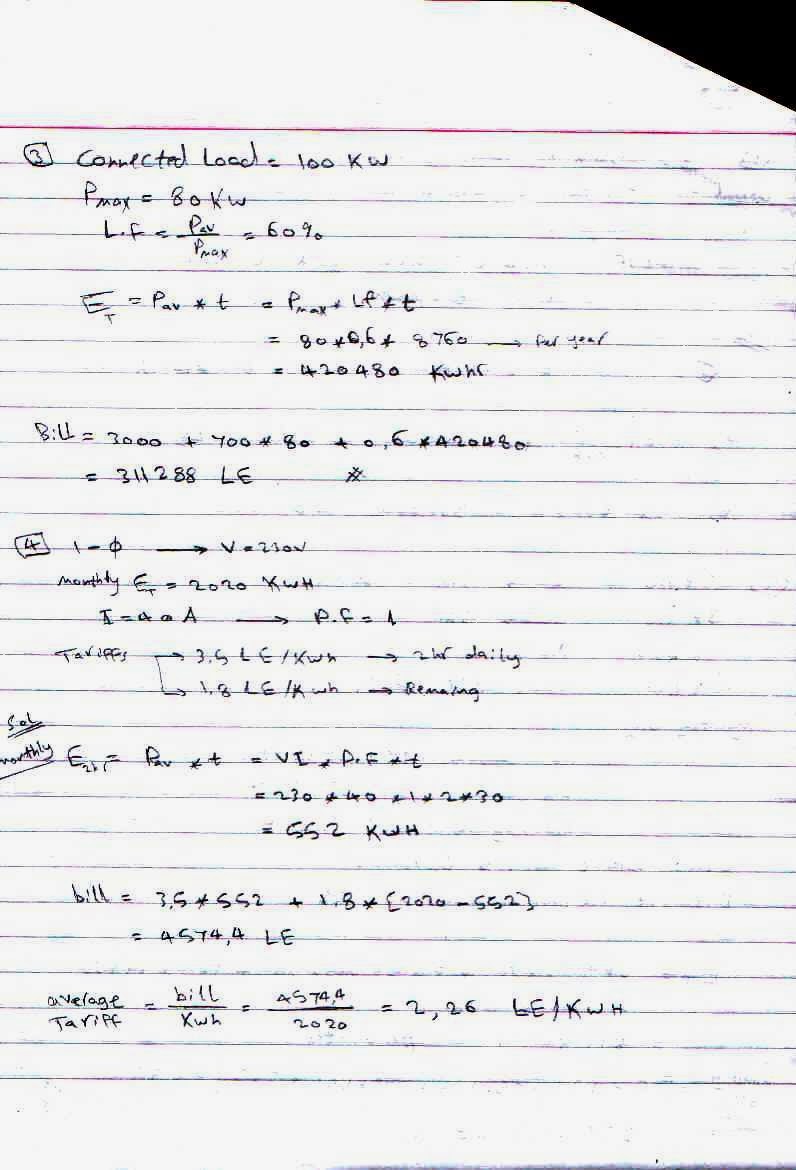 3 Connected Load = 100 KW
Pmax = 80 KW
L.F = Pav / Pmax = 60%
E_T = Pav * t = Pmax * LF * t
= 80 * 0,6 * 8760 → for year
= 420480 Kwhr
Bill = 3000 + 700 * 80 + 0,6 * 420480
= 311288 LE #
4 1-φ → V = 230V
monthly E_T = 2020 KWH
I = 40 A → P.F = 1
Tariffs → 3,5 LE/Kwh → 2hr daily
→ 1,8 LE/Kwh → Remaing
Sol
monthly E_2hr = Pav * t = VI * P.F * t
= 230 * 40 * 1 * 2 * 30
= 552 KWH
bill = 3,5 * 552 + 1.8 * [2020 - 552]
= 4574,4 LE
average Tariff = bill / Kwh = 4574,4 / 2020 = 2,26 LE/KWH